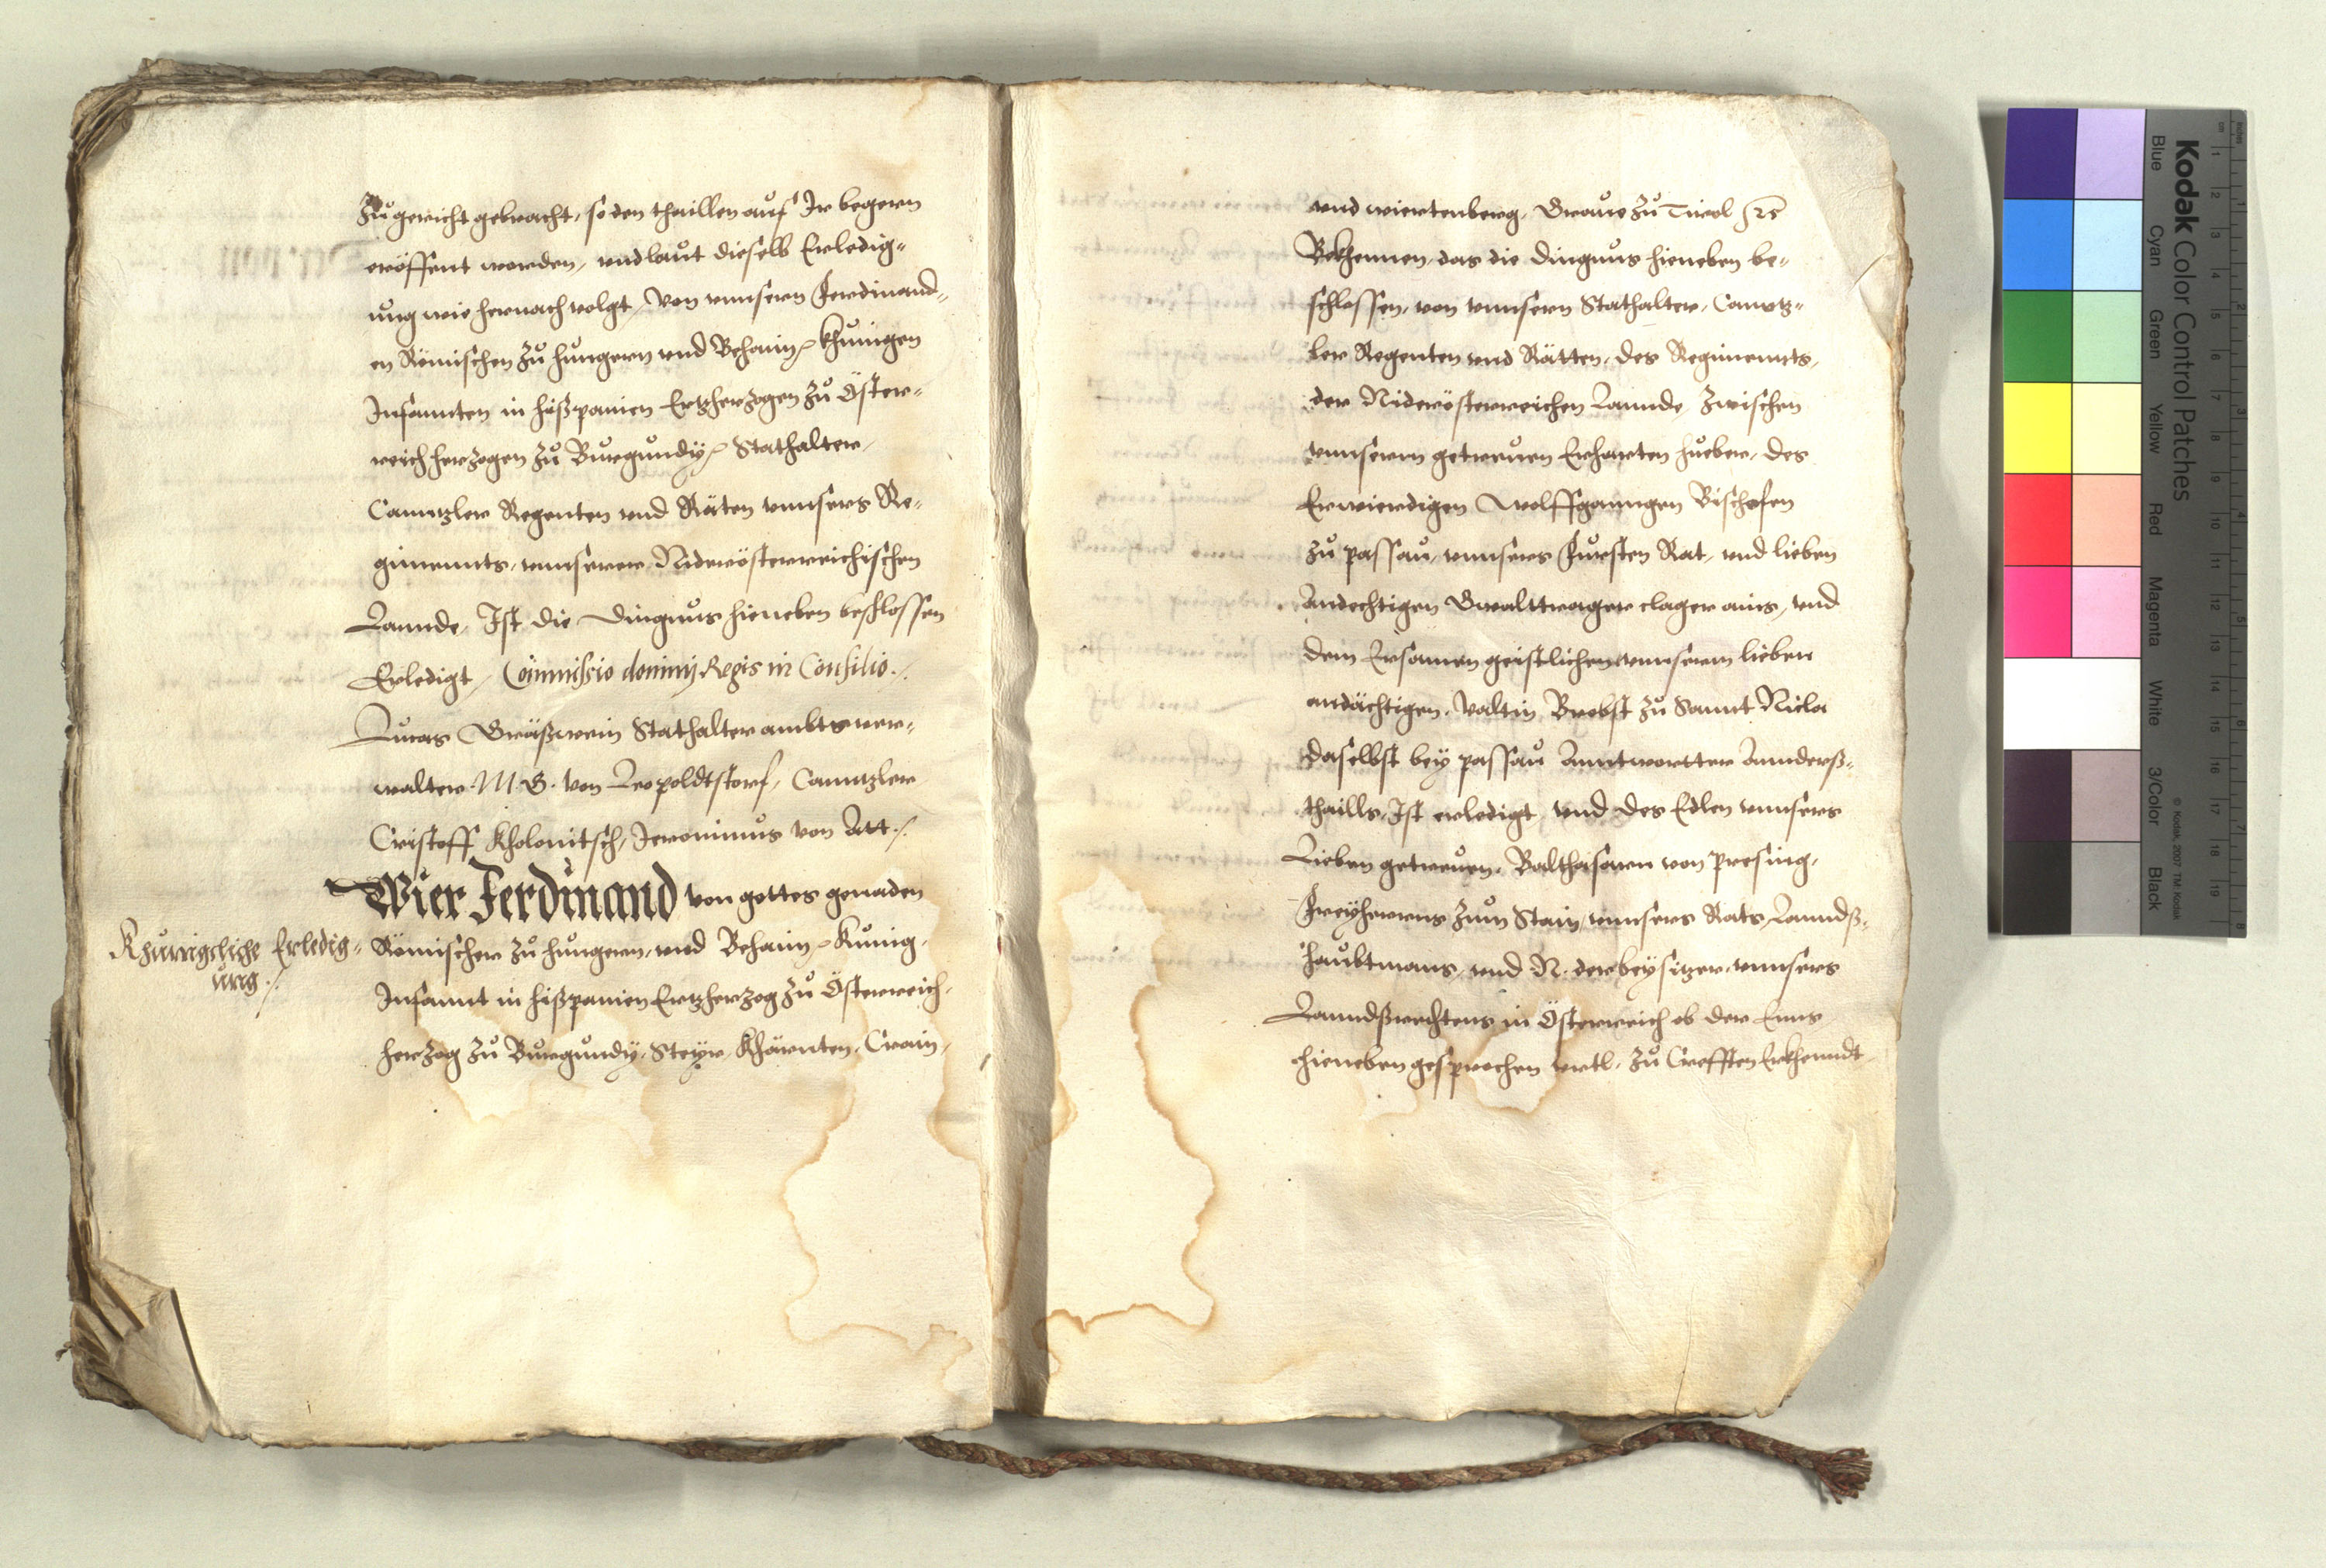 zů gericht gebracht, so den thaillen auf Ir begern
eröffent worden, vnd laut dieselb Erledig-
ung wie hernach volgt, Von vnnsern Ferdinand-
en Römischen zů hungern vnd Behaim, khunigen
Infannten in hißpanien Ertzherzogen zů Öster-
reich herzogen zů Burgundӱ, Stathalter,
Canntzler Regenten vnd Räten vnnsers Re-
gimennts, vnnserer Niderösterreichischen
Lannde, Ist die Dingnus hieneben beschlossen
Erledigt, Commissio dominj Regis in Consilio ./.
Lucas Gräßwein Stathalter ambts ver-
walter. M. B. von Leopoldtstorf, Canntzler
Cristoff Kholonitsch, Jeronimus von Att ./.
Wier Ferdinand von gottes genaden
Khunigcliche Erledig-
ung ./.
Römischer zů hungern, vnd Behaim, Kunig,
Infannt in hißpanien Ertzherzog zů Österreich,
herzog zů Burgundӱ, Steyr, Khärnten, Crain,
vnd wiertenberg, Graue zů Tirol etc
Bekhennen, das die Dingnus hieneben be-
schlossen, von vnnsern Stathalter, Canntz-
ler Regenten vnd Rätten, des Regimennts,
der Niderösterreichen Lannde, zwischen
vnnserm getreuen Erharten hueber, des
Erwierdigen Wolffganngen Bischofen
zů passau, vnnsers Fursten Rat, vnd lieben
Andechtigen Gwalttrager clager ains, vnd
dem Ersamen geistlichen vnnserm lieben
andächtigen, Valtin, Brobst zů Sannt Nicla
daselbst bey passau Anntwortter Annderß-
thaills, Ist erledigt, vnd des Edlen vnnsers
Lieben getreuen, Balthasarn von presing,
Freyherrns zum Stain, vnnsers Rats, Lanndß-
haubtmans, vnd N. der beysitzer, vnnsers
Lanndßrechtens in Österreich ob der Enns
hieneben gesprochen vrtl, zů Crefften Erkhenndt